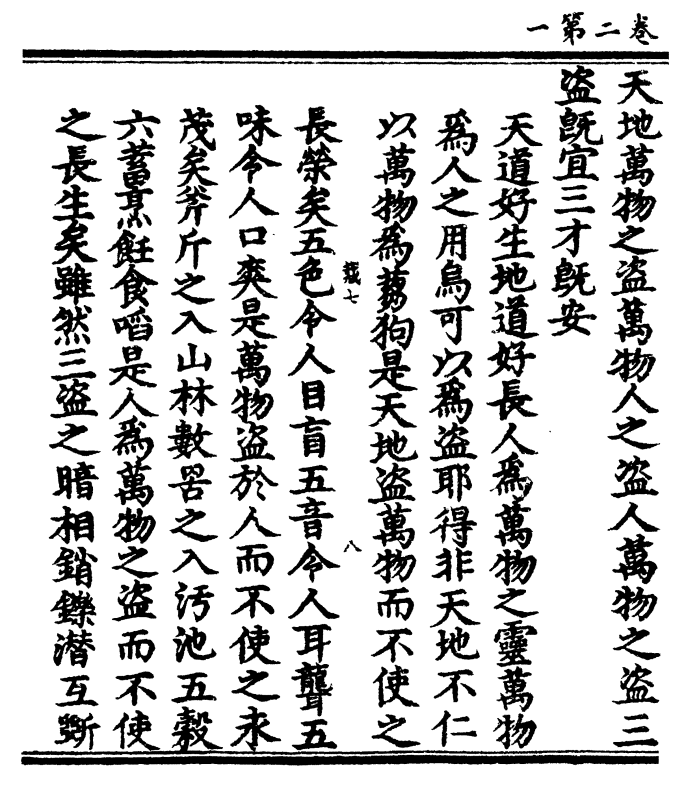 卷二第一
天地萬物之盜萬物人之盜人萬物之盜三
盜旣宜三才旣安
天道好生地道好長人爲萬物之靈萬物
爲人之用烏可以爲盜耶得非天地不仁
以萬物爲蒭狗是天地盜萬物而不使之
㔶七
八
長榮矣五色令人目盲五音令人耳聾五
味令人口爽是萬物盜於人而不使之永
茂矣斧斤之入山林數罟之入汚池五穀
六蓄烹飪食㗖是人爲萬物之盜而不使
之長生矣雖然三盜之暗相銷鑠潛互斲